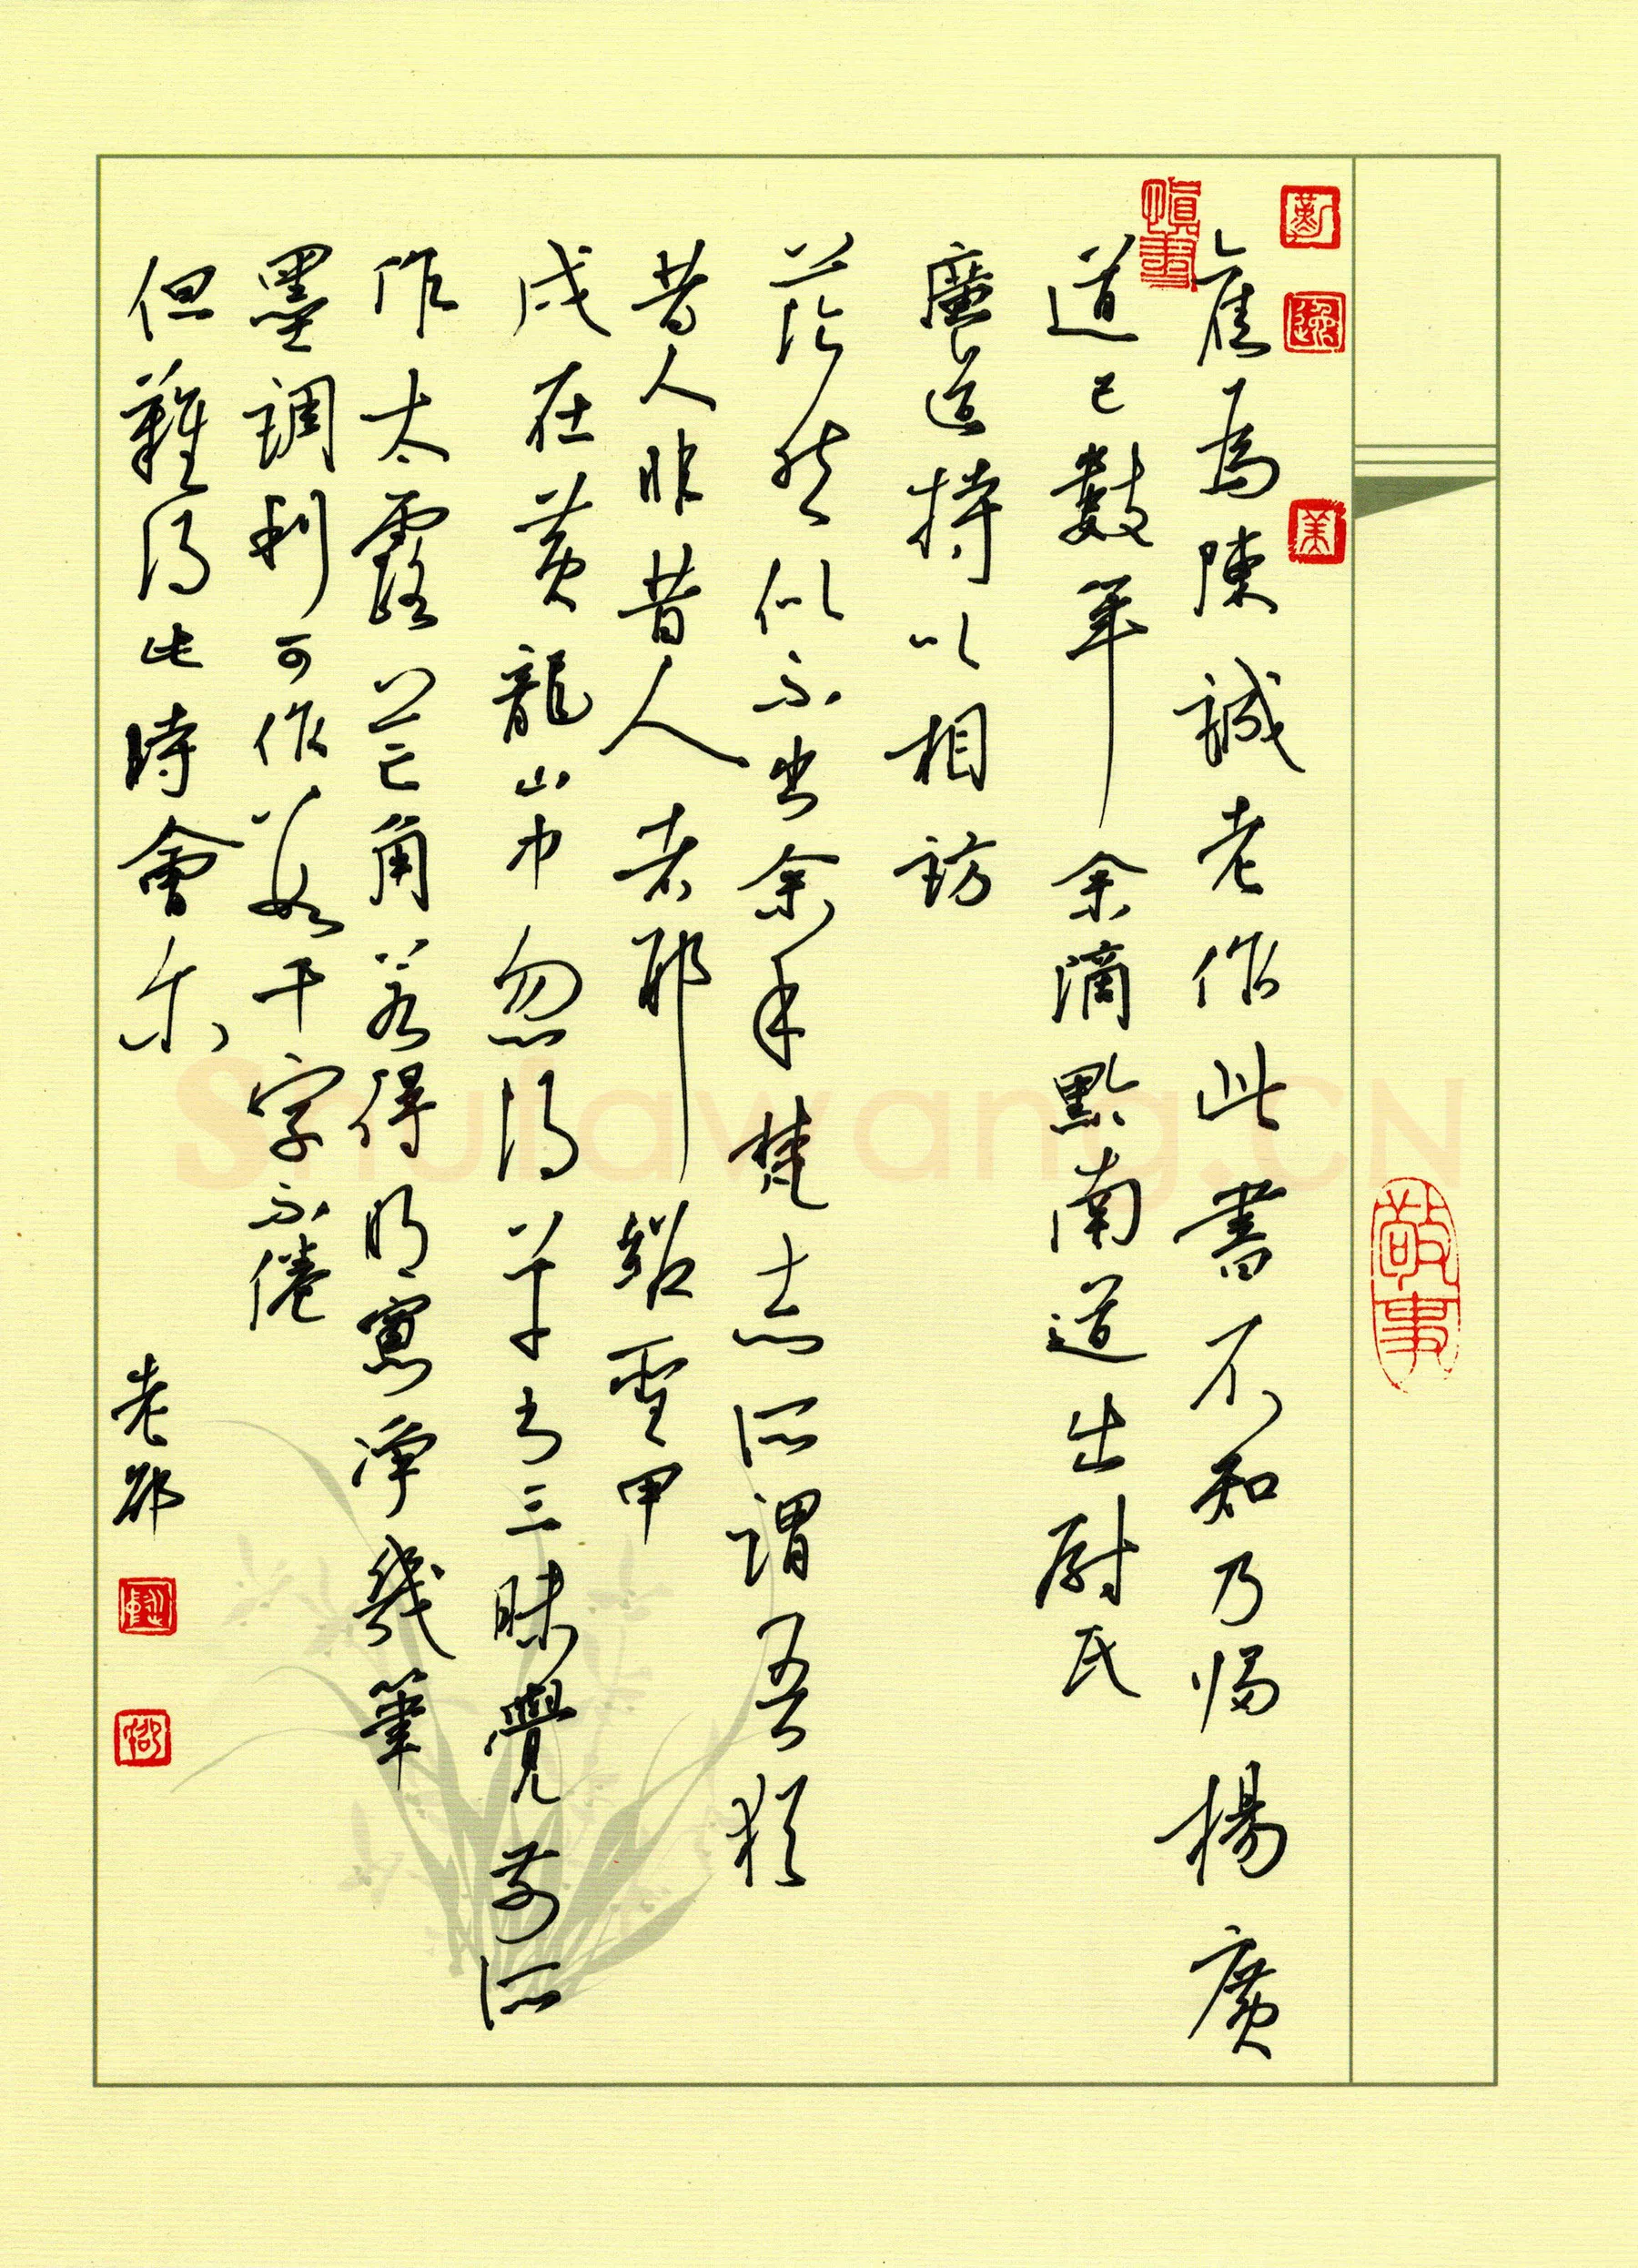 舊為陳誠老作此書不知乃歸楊廣
道已數年余滴黔南道出尉氏
廣道持以相訪
茫然似不出余手梵志所謂吾猶
昔人非昔人者耶紹聖甲
戌在黃龍山中忽得草書三昧覺前所
作太露芒角若得明窗淨幾筆
墨調利可作數千字不倦
但難得此時會爾
老邵
敬事
慎書
Shufawang.CN